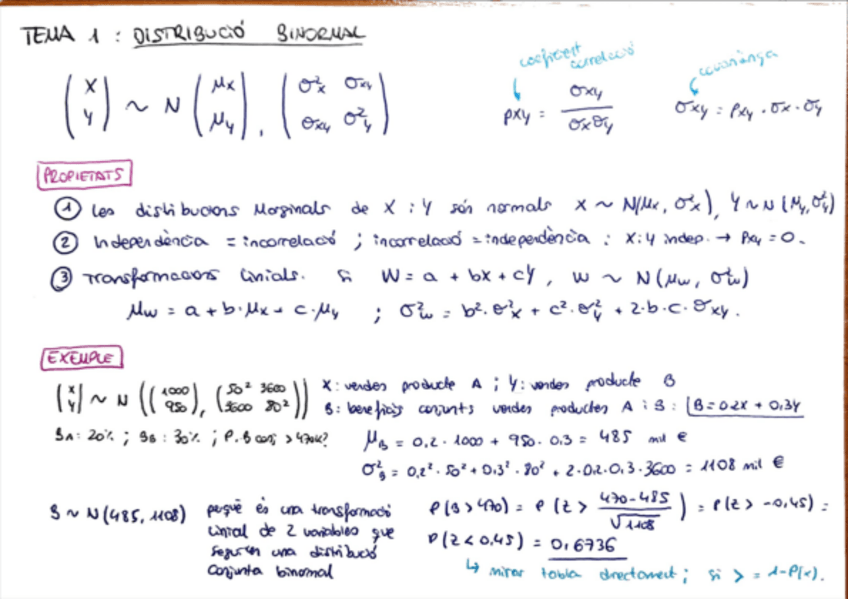 TEMA 1 : DISTRIBUCIÓ BINORMAL
coeficient correlació
covariànça
(X Y) ~ N (μx μy), (σ²x σxy σxy σ²y)
ρxy = σxy / σxσy
σxy = ρxy · σx · σy
PROPIETATS
① Les distribucions Marginals de X i Y són normals X ~ N(μx, σ²x), Y ~ N(μy, σ²y)
② Independència = incorrelació ; incorrelació = independència : X i Y indep. → ρxy = 0.
③ Transformacions linials. Si W = a + bX + cY, W ~ N(μw, σ²w)
μw = a + b·μx + c·μy ; σ²w = b²·σ²x + c²·σ²y + 2·b·c·σxy.
EXEMPLE
(X Y) ~ N ((1000 950), (50² 3600 3600 80²))
X : vendes producte A ; Y : vendes producte B
B : beneficis conjunts vendes productes A i B : B = 0.2X + 0,3Y
BA : 20% ; BB : 30% ; P. B conj > 470k?
μB = 0.2 · 1000 + 950 · 0.3 = 485 mil €
σ²B = 0,2² · 50² + 0,3² · 80² + 2 · 0.2 · 0.3 · 3600 = 1108 mil €
B ~ N(485, 1108)
perquè és una transformació
linial de 2 variables que
segueixen una distribució
conjunta binormal
P(B > 470) = P(Z > 470-485 / √1108) = P(Z > -0,45) =
P(Z < 0,45) = 0,6736
↳ mirar tabla directament ; si > = 1-P(x).